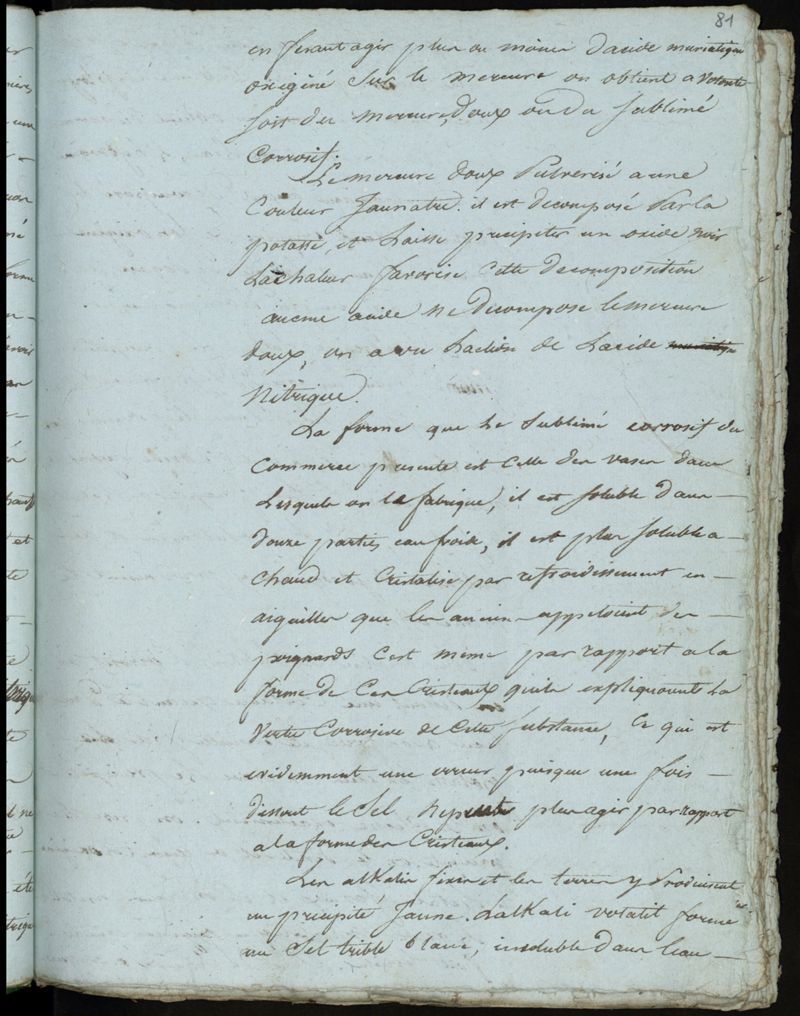 81
en fesant agir plus ou moins d'acide muriatique
oxigéné sur le mercure on obtient a volonté
soit du mercure doux ou du sublimé
Corrosif.
Le mercure doux Pulverisé a une
Couleur Jaunatre. il est decomposé Par la
potasse, et Laisse precipiter un oxide noir
La chaleur favorise cette decomposition
aucune acide ne Decompose le mercure
doux, on a vu Laction de Lacide
Nitrique.
La forme que Le Sublimé corrosif du
Commerce presente est Celle des vases dans
Lesquels on le fabrique, il est soluble dans
douze parties eau froide, il est plus soluble a
chaud et Cristalise par refroidissement en
aiguilles que les anciens appeloient des
poignards c'est meme par rapport a la
forme de Ces Cristeaux quils expliquoient La
Vertu Corrosive de Cette substance, Ce qui est
evidemment une erreur puisque une fois
dissout le Sel ne peut plus agir par rapport
a la forme des Cristeaux.
Les alkalis fixes et les terres y Produisent
un precipité Jaune. Lalkali volatil forme
un Sel trible blanc, insoluble dans Leau